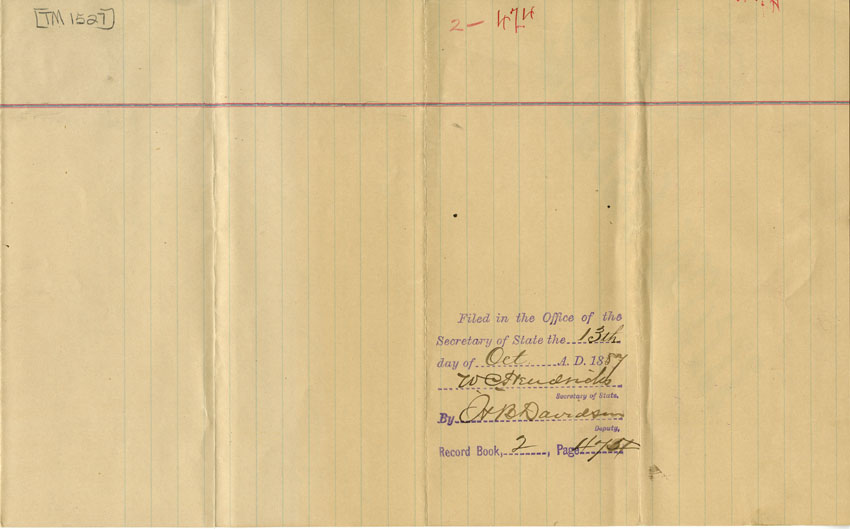 [TM 1527]
2- 474
Filed in the Office of the
Secretary of State the 13th
day of Oct A. D. 1887
W C Hendricks
Secretary of State.
By H B Davidson
Deputy.
Record Book, 2, Page 474